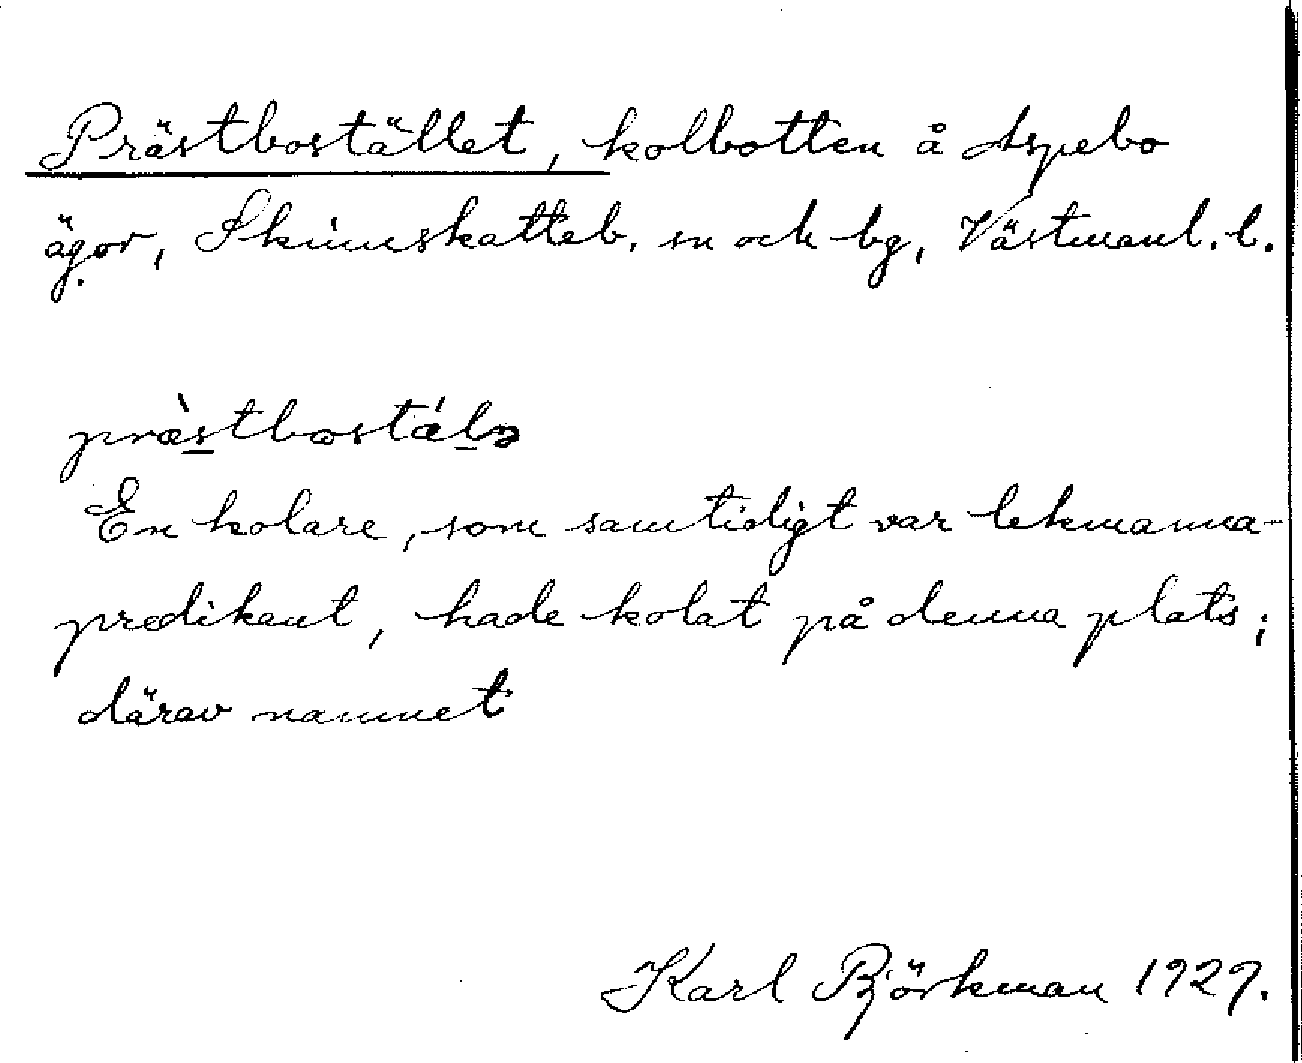 Prästbostället, kolbotten å Aspebo
ägor, Skinnskatteb. sn och bg, Västmanl. l.
præ̀stbostǽlə
En kolare, som samtidigt var lekmanna-
predikant, hade kolat på denna plats;
därav namnet
Karl Björkman 1929.